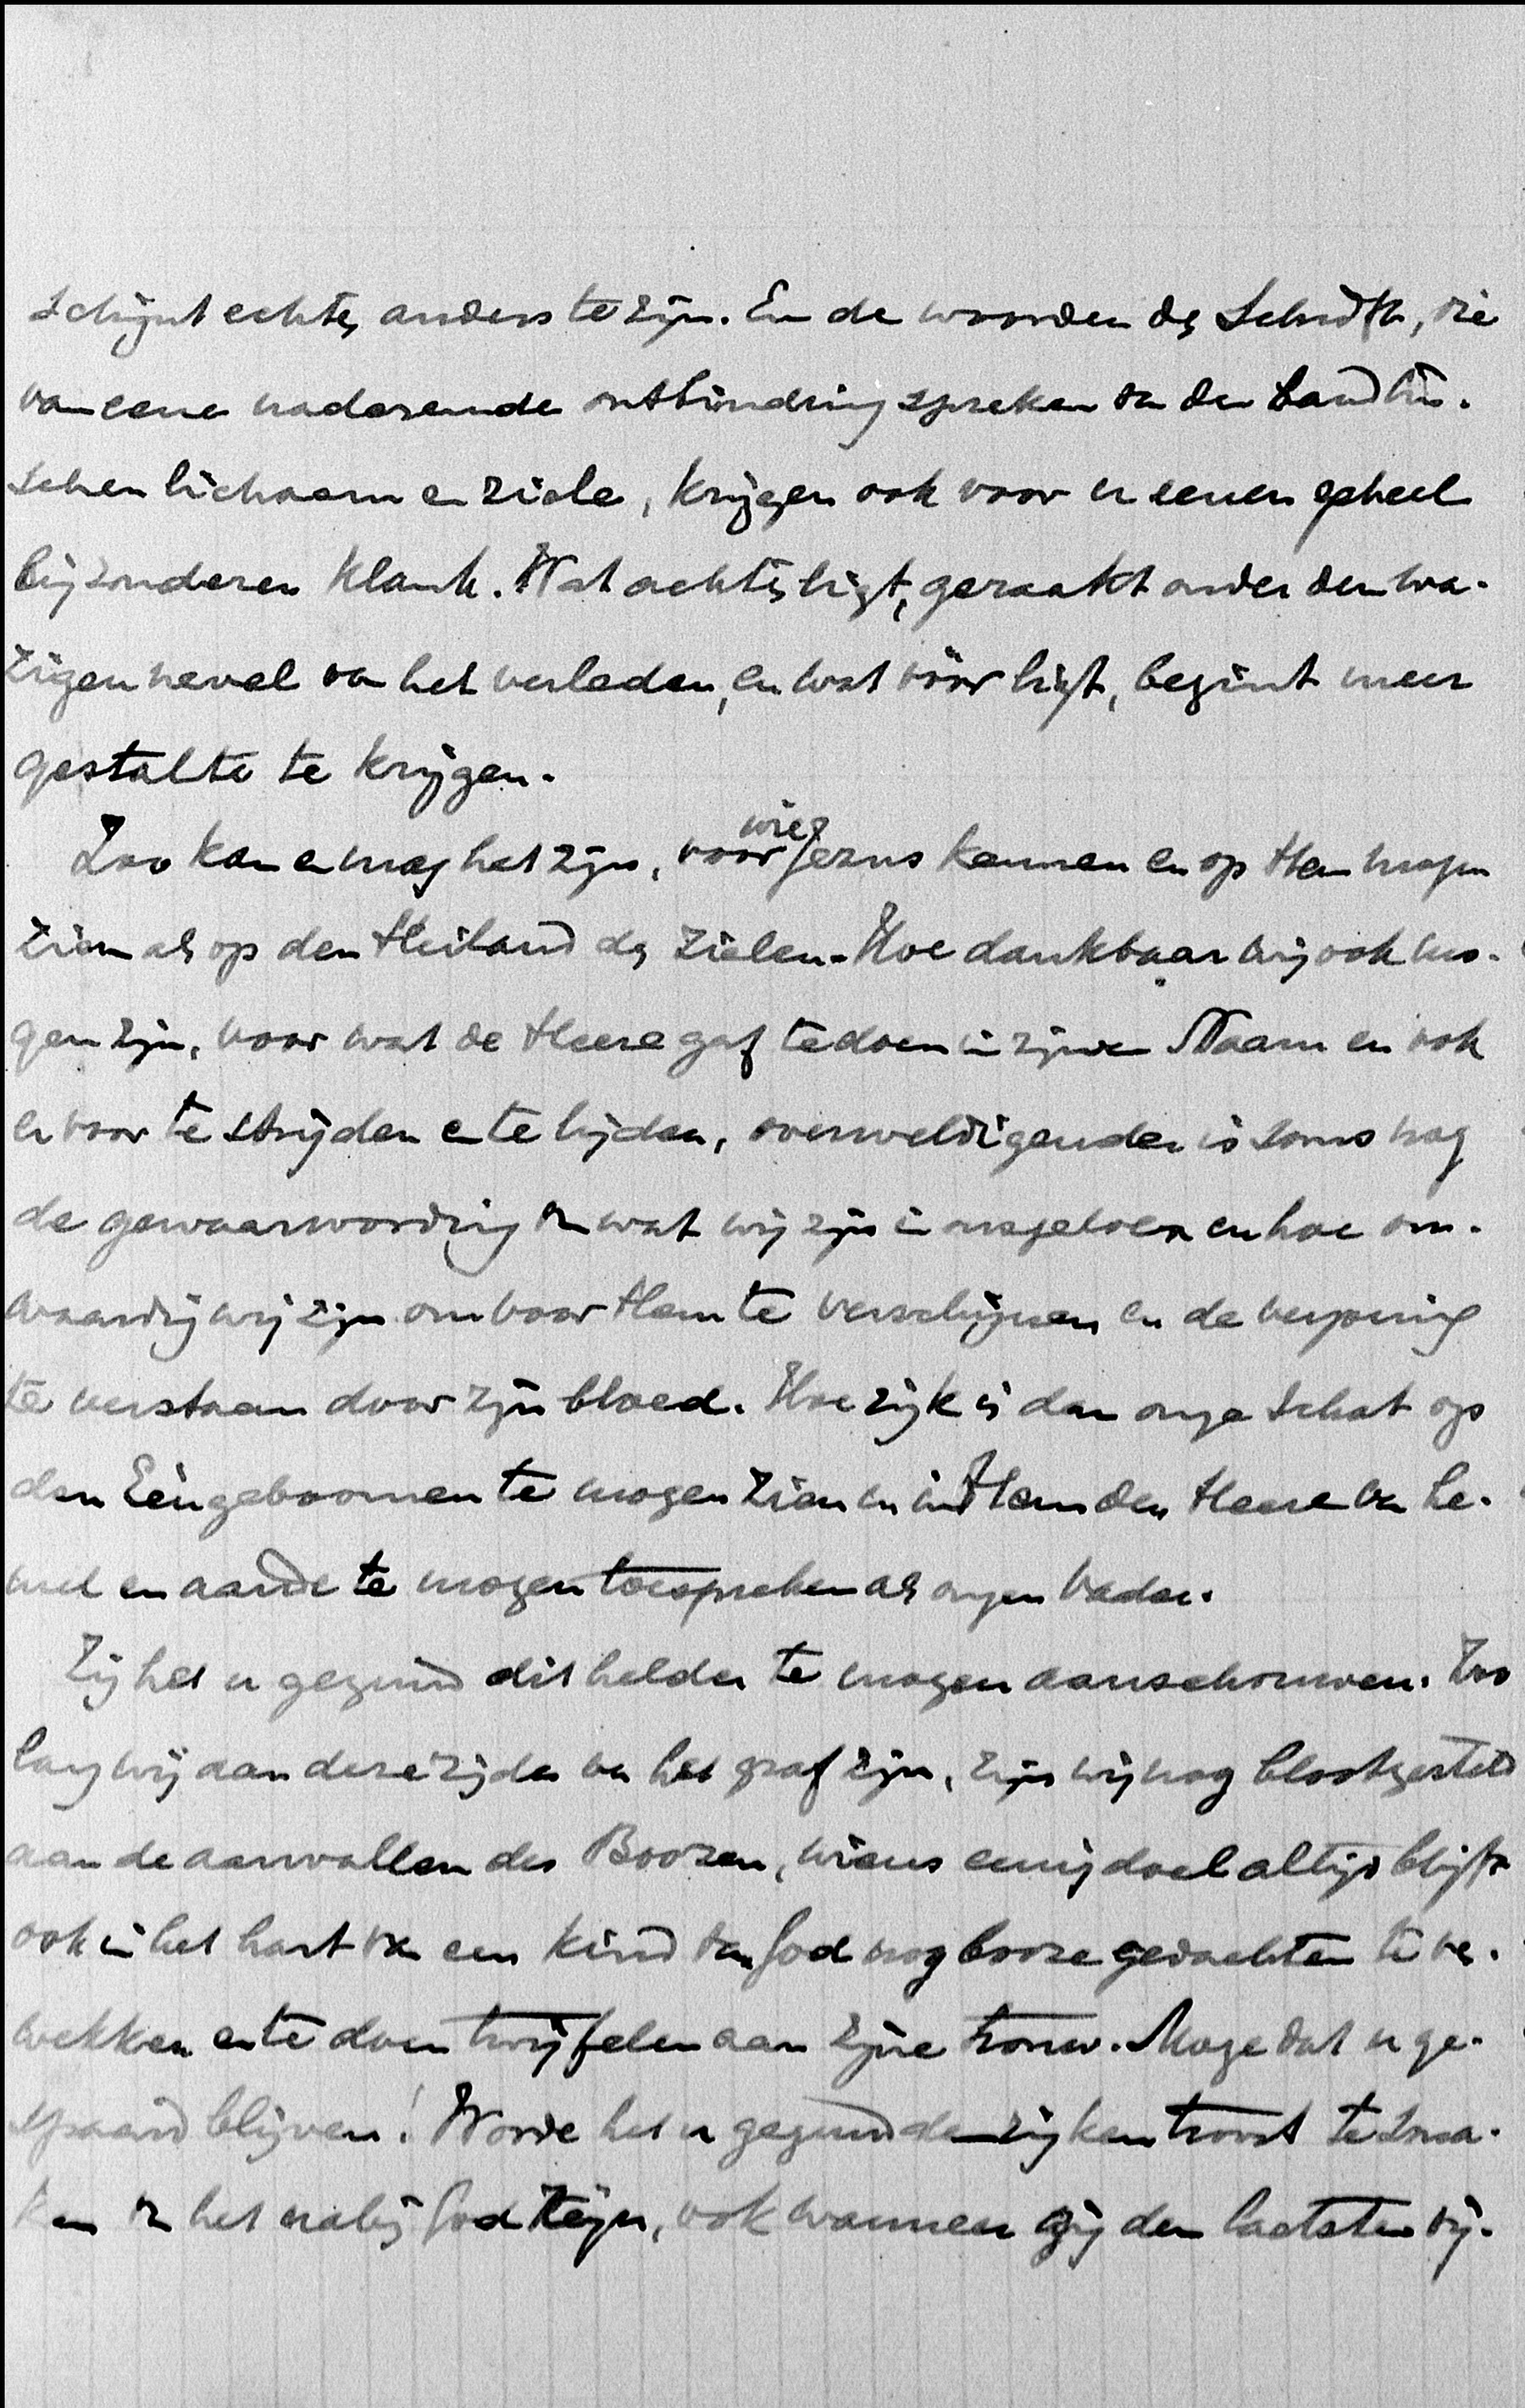 schijnt echter anders te zijn. En de woorden der Schrift, die
van eene naderende ontbinding spreken van den band tus-
schen lichaam en ziele, krijgen ook voor u eenen geheel
bijzonderen klank. Wat achter ligt, geraakt onder den wa-
zigen nevel van het verleden, en wat vóór ligt, begint meer
gestalte te krijgen.
Zoo kan en mag het zijn, voor wie Jezus kennen en op Hem mogen
zien als op den Heiland der zielen. Hoe dankbaar wij ook mo-
gen zijn, voor wat de Heere gaf te doen in zijnen Naam en ook
er voor te strijden en te lijden, overweldigender is soms nog
de gewaarwording van wat wij zijn in onszelven en hoe on-
waardig wij zijn om voor Hem te verschijnen en de verzoening
te verstaan door zijn bloed. Hoe rijk is dan onze schat op
den Eengeboornen te mogen zien en in Hem den Heere van he-
mel en aarde te mogen toespreken als onzen Vader.
Zij het u gegund dit helder te mogen aanschouwen. Zoo
lang wij aan deze zijde van het graf zijn, zijn wij nog blootgesteld
aan de aanvallen des Boozen, wiens eenig doel altijd blijft
ook in het hart van een kind van God nog booze gedachten te ver-
wekken en te doen twijfelen aan zijne trouw. Moge dat u ge-
spaard blijven! Worde het u gegund den rijken troost te sma-
ken van het nabij God zijn, ook wanneer gij den laatsten vij-